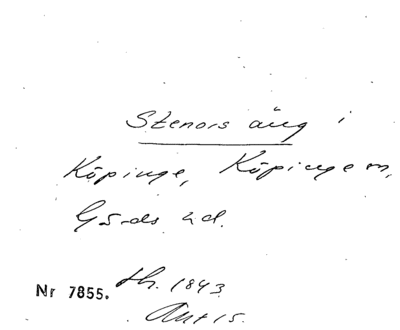 Stenors äng i
Köpinge, Köpinge sn,
Gärds hd.
Nr 7855. th. 1843.
Akt 15.